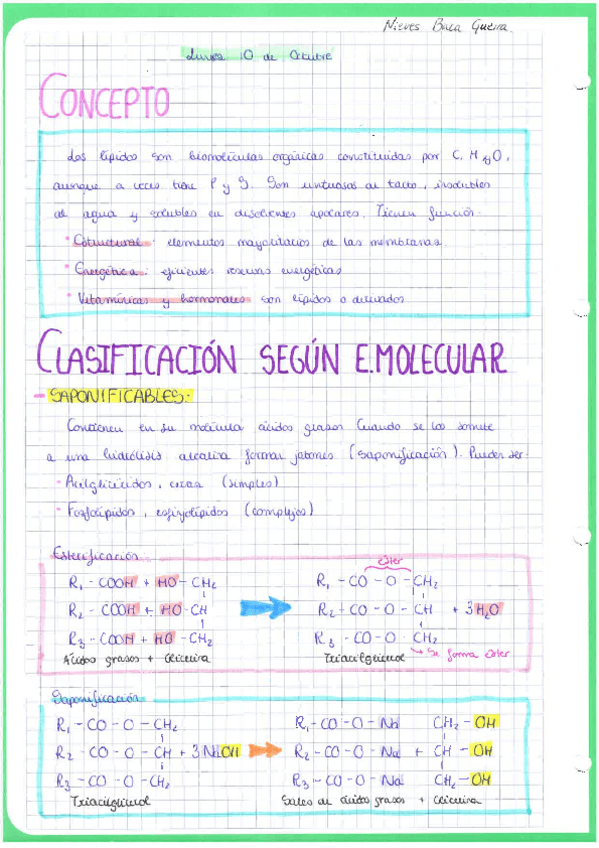 Nieves Baca Guerra.
Lunes 10 de Octubre
CONCEPTO
Los lípidos son biomoléculas orgánicas constituidas por C, H y O,
aunque a veces tiene P y S. Son untuosos al tacto, insolubles
al agua y solubles en disolventes apolares. Tienen función:
· Estructural: elementos mayoritarios de las membranas.
· Energética: eficientes reservas energéticas
· Vitamínicas y hormonales son lípidos o derivados
CLASIFICACIÓN SEGÚN E.MOLECULAR
- SAPONIFICABLES:
Contienen en su molécula ácidos grasos Cuando se los somete
a una hidrólisis alcalina forman jabones (saponificación). Pueden ser:
· Acilglicéridos, ceras (simples)
· Fosfolípidos, esfingolípidos (complejos)
Esterificación
éster
R₁ - COOH + HO - CH₂ R₁ - CO - O - CH₂
R₂ - COOH + HO - CH R₂ - CO - O - CH + 3H₂O
R₃ - COOH + HO - CH₂ R₃ - CO - O - CH₂
Ácidos grasos + Glicerina Triacilglicerol → Se forma éster
Saponificación
R₁ - CO - O - CH₂ R₁ - CO - O - Na CH₂ - OH
R₂ - CO - O - CH + 3NaOH R₂ - CO - O - Na + CH - OH
R₃ - CO - O - CH₂ R₃ - CO - O - Na CH₂ - OH
Triacilglicerol Sales de ácidos grasos + Glicerina